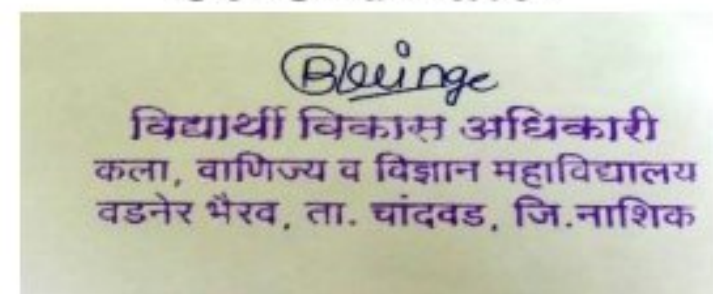 विद्यार्थी विकास अधिकारी
कला, वाणिज्य व विज्ञान महाविद्यालय
वडनेर भैरव, ता. चांदवड, जि.नाशिक